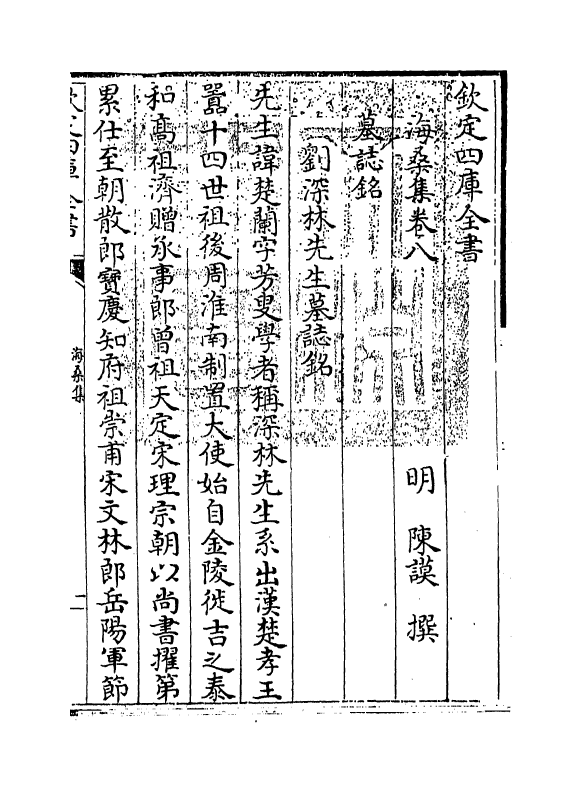 欽定四庫全書
海桑集卷八
明 陳謨 撰
墓誌銘
劉深林先生墓誌銘
先生諱楚蘭字芳叟學者稱深林先生系出漢楚孝王
囂十四世祖後周淮南制置大使始自金陵徙吉之泰
和高祖濟贈承事郎曾祖天定宋理宗朝以尚書擢第
累仕至朝散郎寶慶知府祖崇甫宋文林郎岳陽軍節
欽定四庫全書
海桑集